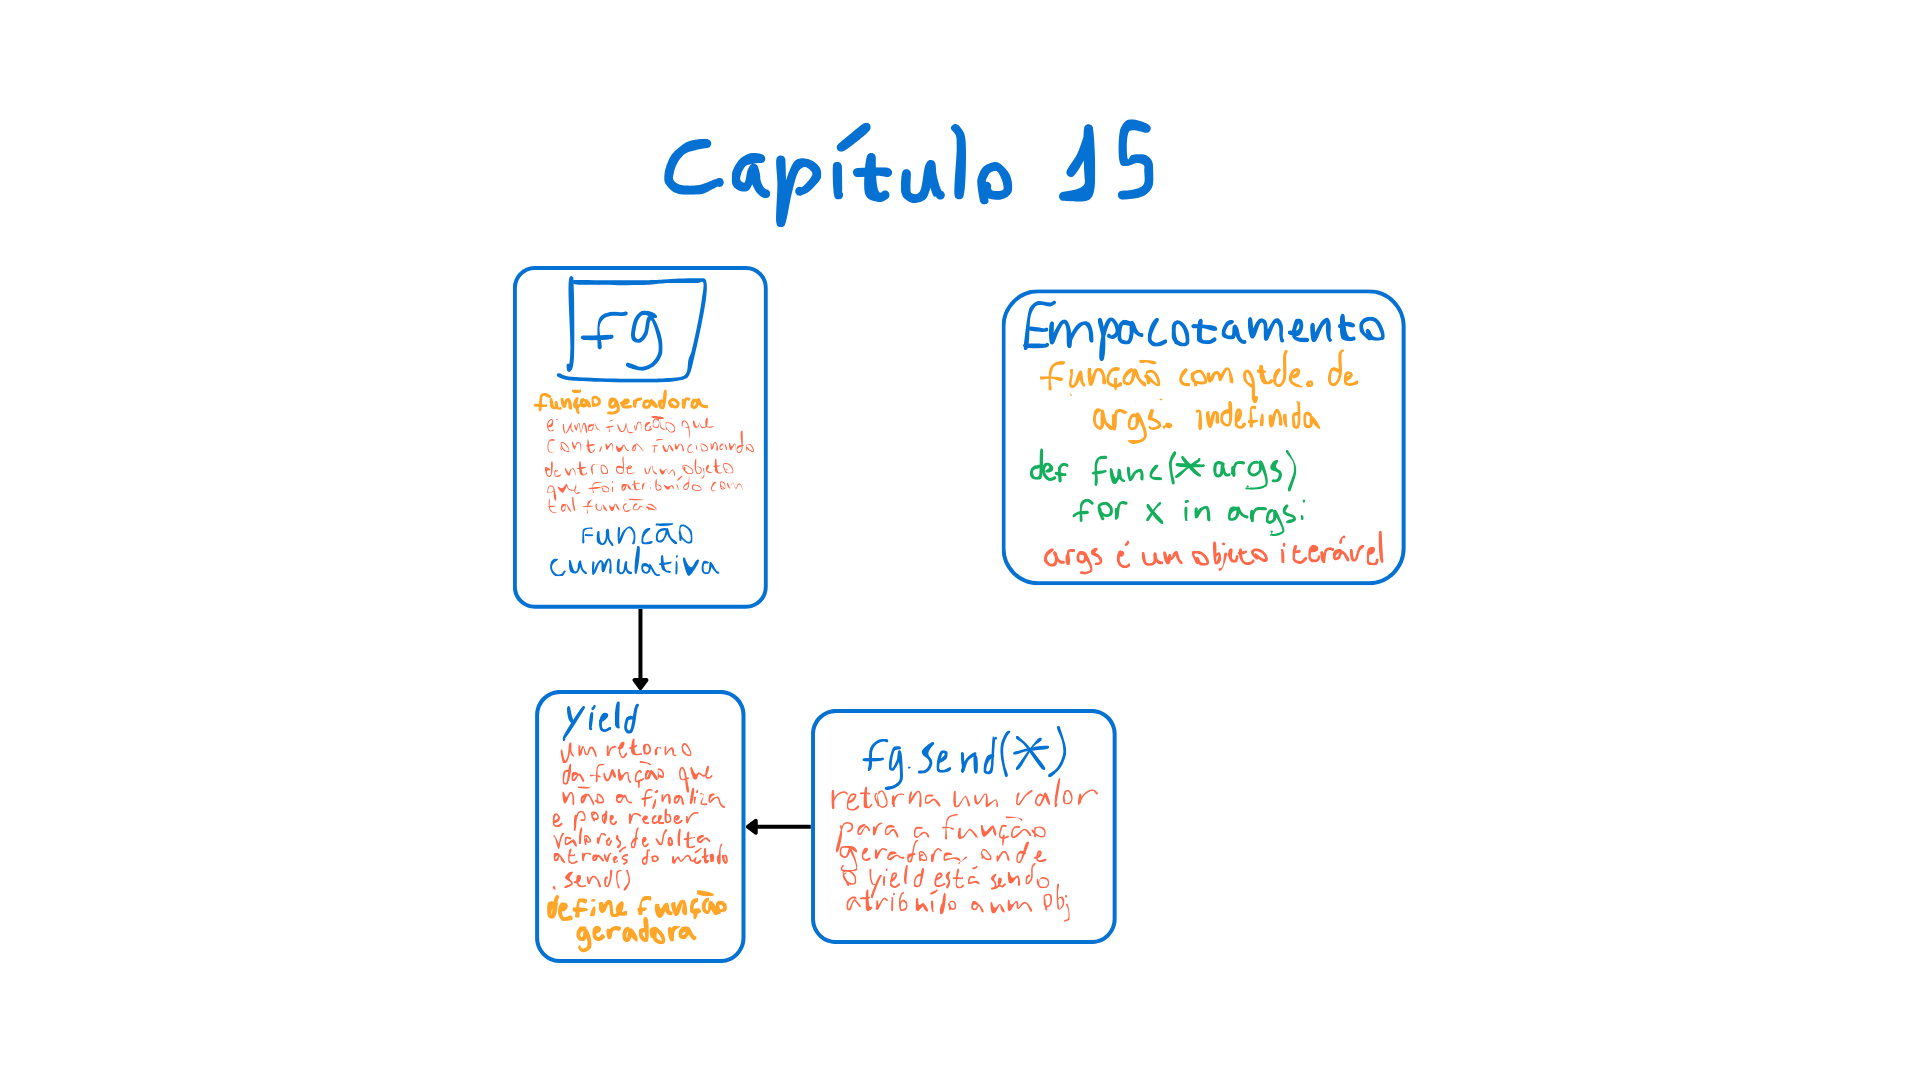 Capítulo 15
fg
função geradora
é uma função que
continua funcionando
dentro de um objeto
que foi atribuído com
tal função
Função
cumulativa
Empacotamento
função com qtde. de
args. indefinida
def func(*args)
for x in args:
args é um objeto iterável
yield
um retorno
da função que
não a finaliza
e pode receber
valores de volta
através do método
.send()
define função
geradora
fg.send(*)
retorna um valor
para a função
geradora, onde
o yield está sendo
atribuído a um obj